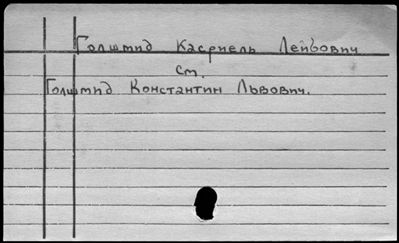 Голшмид Касриель Лейбович
см.
Голшмид Константин Львович.